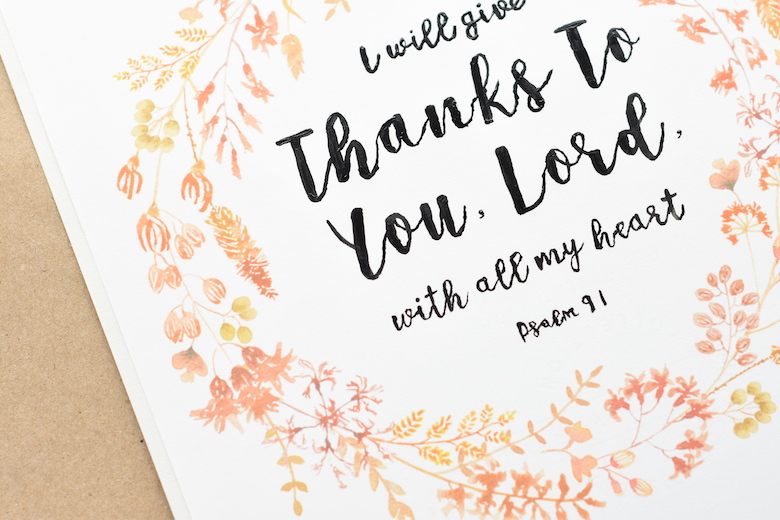 I will give
Thanks To
You, Lord,
with all my heart
Psalm 9 1